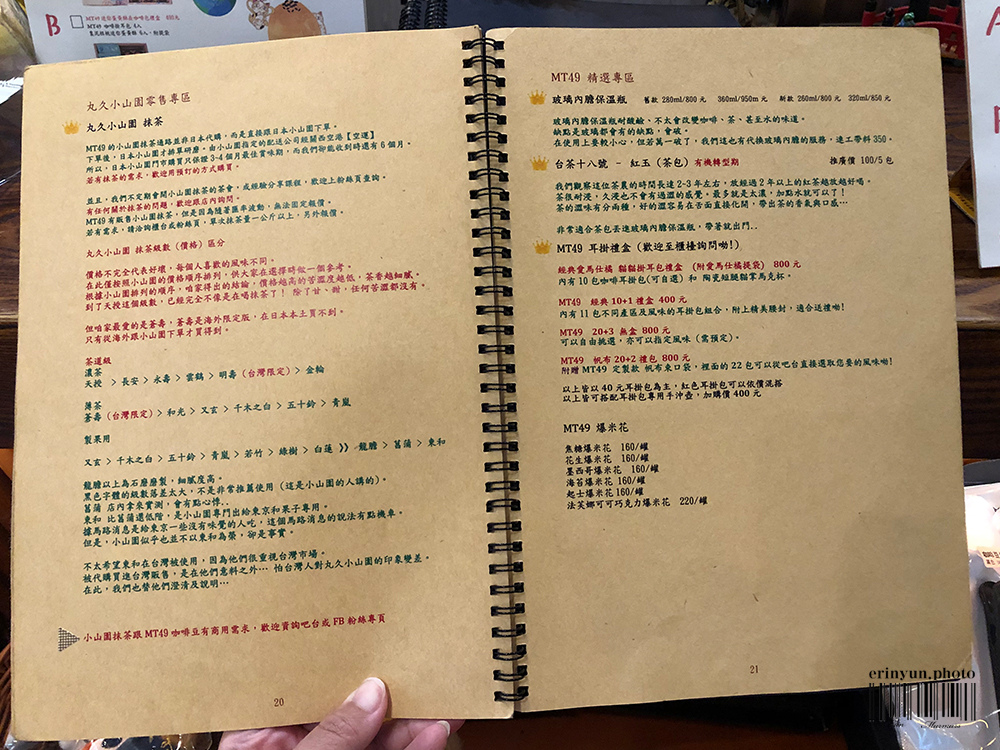 B
MT49 咖啡掛耳包 6入
丸久小山園零售專區
丸久小山園 抹茶
MT49 的小山園抹茶通路並非日本代購，而是直接跟日本小山園下單。
下單後，日本小山園才排單研磨。由小山園指定的配送公司經關西空港【空運】
所以，日本小山園門市購買只保證 3-4 個月最佳賞味期，而我們卻能收到時還有 6 個月。
若有抹茶的需求，歡迎用預訂的方式購買。
並且，我們不定期會開小山園抹茶的茶會，或經驗分享課程，歡迎上粉絲頁查詢。
有任何關於抹茶的問題，歡迎跟店內詢問。
MT49 有販售小山園抹茶，但是因為隨著匯率波動，無法固定報價。
若有需求，請洽詢櫃台或粉絲頁，單次抹茶量一公斤以上，另外報價。
丸久小山園 抹茶級數（價格）區分
價格不完全代表好壞，每個人喜歡的風味不同。
在此僅按照小山園的價格順序排列，供大家在選擇時做一個參考。
根據小山園排列的順序，咱家得出的結論，價格越高的苦澀度越低，茶香越細膩。
到了天授這個級數，已經完全不像是在喝抹茶了！ 除了甘、甜，任何苦澀都沒有。
但咱家最愛的是蒼壽，蒼壽是海外限定版，在日本本土買不到。
只有從海外跟小山園下單才買得到。
茶道級
濃茶
天授 > 長安 > 永壽 > 雲鶴 > 明壽（台灣限定）> 金輪
薄茶
蒼壽（台灣限定）> 和光 > 又玄 > 千木之白 > 五十鈴 > 青嵐
製菓用
又玄 > 千木之白 > 五十鈴 > 青嵐 > 若竹 > 綠樹 > 白蓮 》》 龍膽 > 菖蒲 > 東和
龍膽以上為石磨磨製，細膩度高。
黑色字體的級數落差太大，不是非常推薦使用（這是小山園的人講的）。
菖蒲 店內拿來實測，會有點心悸..
東和 比菖蒲還低階，是小山園專門出給東京和果子專用。
據馬路消息是給東京一些沒有味覺的人吃，這個馬路消息的說法有點機車。
但是，小山園似乎也並不以東和為榮，卻是事實。
不太希望東和在台灣被使用，因為他們很重視台灣市場。
被代購買進台灣販售，是在他們意料之外… 怕台灣人對丸久小山園的印象變差。
在此，我們也替他們澄清及說明…
小山園抹茶跟 MT49 咖啡豆有商用需求，歡迎資詢吧台或 FB 粉絲專頁
20
MT49 精選專區
玻璃內膽保溫瓶 舊款 280ml/800 元 360ml/950m 元 新款 260ml/800 元 320ml/850 元
玻璃內膽保溫瓶耐酸鹼、不太會改變咖啡、茶、甚至水的味道。
缺點是玻璃都會有的缺點，會破。
在使用上要較小心，但若萬一破了，我們這也有代換玻璃內膽的服務，連工帶料 350。
台茶十八號 - 紅玉（茶包）有機轉型期 推廣價 100/5 包
我們觀察這位茶農的時間長達 2-3 年左右，放經過 2 年以上的紅茶越放越好喝。
茶很耐浸，久浸也不會有過澀的感覺。最多就是太濃，加點水就可以了！
茶的澀味有分兩種，好的澀容易在舌面直接化開，帶出茶的香氣與口感…
非常適合茶包丟進玻璃內膽保溫瓶，帶著就出門..
MT49 耳掛禮盒（歡迎至櫃檯詢問呦!）
經典愛馬仕橘 貓貓掛耳包禮盒 （附愛馬仕橘提袋） 800 元
內有 10 包咖啡耳掛包(可自選) 和 陶瓷短腿貓掌馬克杯。
MT49 經典 10+1 禮盒 400 元
內有 11 包不同產區及風味的耳掛包組合，附上精美腰封，適合送禮呦!
MT49 20+3 無盒 800 元
可以自由挑選，亦可以指定風味（需預定）。
MT49 帆布 20+2 禮包 800 元
附贈 MT49 定製款 帆布束口袋，裡面的 22 包可以從吧台直接選取您要的風味呦!
以上皆以 40 元耳掛包為主，紅色耳掛包可以依價混搭
以上皆可搭配耳掛包專用手沖壺，加購價 400 元
MT49 爆米花
焦糖爆米花 160/罐
花生爆米花 160/罐
墨西哥爆米花 160/罐
海苔爆米花 160/罐
起士爆米花 160/罐
法芙娜可可巧克力爆米花 220/罐
21
erinyun.photo
Murmurs